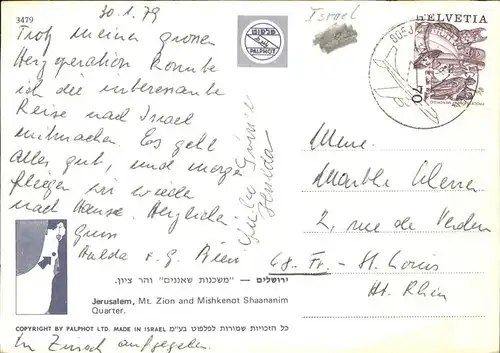 3479
30.1.79
Trotz meiner grossen
Herzoperation konnte
ich die interessante
Reise nach Israel
mitmachen. Es geht
alles gut, und morgen
fliegen wir wieder
nach Hause. Herzliche
Grüsse
Hulda
פלפוט
PALPHOT
Israel
HELVETIA
70
Mme.
2, rue de Verdun
68. Fr. - St. Louis
Ht. Rhin
ירושלים – "משכנות שאננים" והר ציון.
Jerusalem, Mt. Zion and Mishkenot Shaananim
Quarter.
COPYRIGHT BY PALPHOT LTD. MADE IN ISRAEL כל הזכויות שמורות לפלפוט בע"מ
In Zürich aufgegeben.